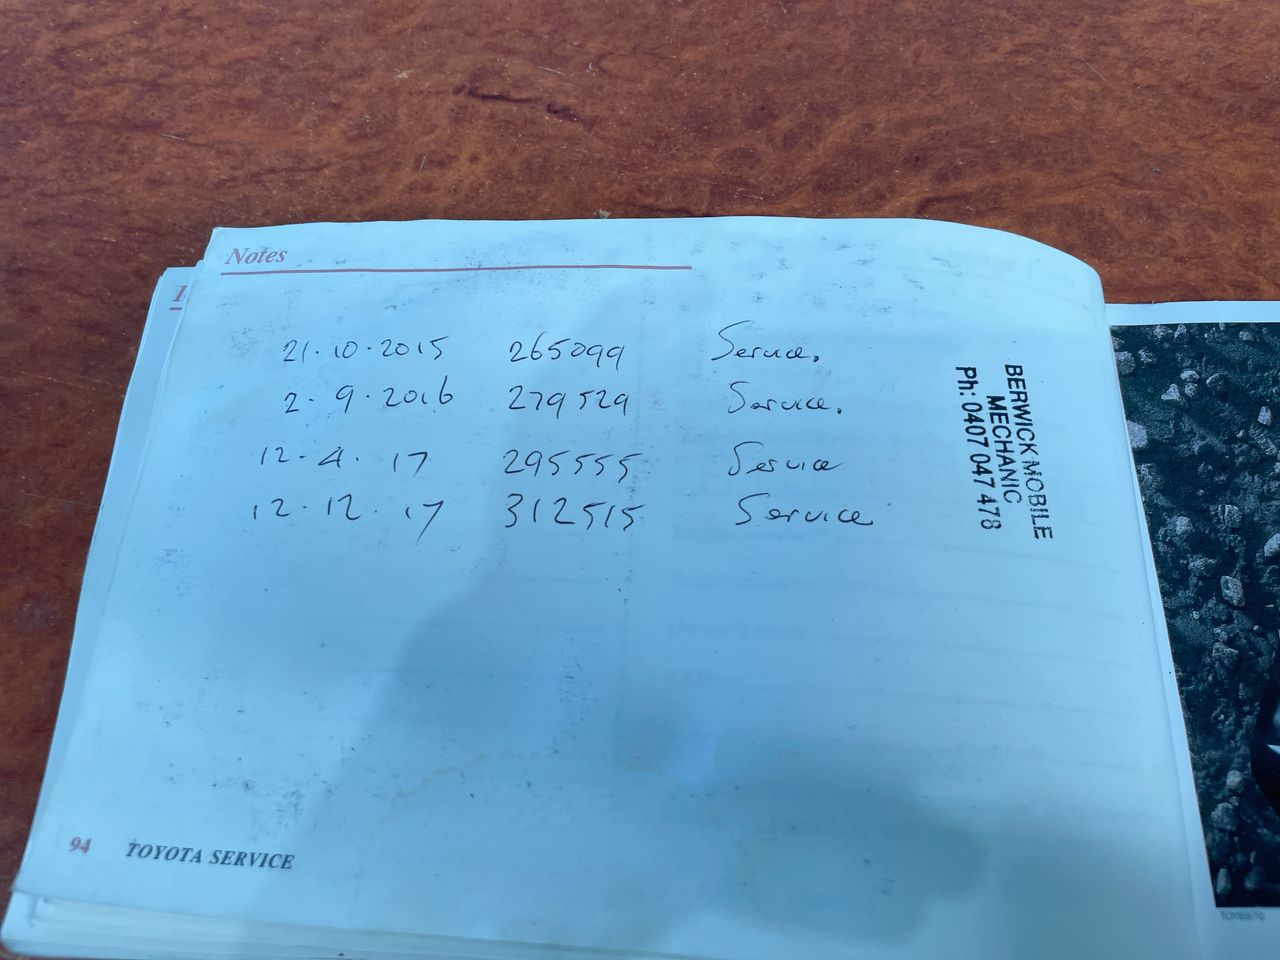 Notes
21.10.2015 265099 Service.
2.9.2016 279529 Service.
12.4.17 295555 Service
12.12.17 312515 Service
BERWICK MOBILE
MECHANIC
Ph: 0407 047 478
94 TOYOTA SERVICE